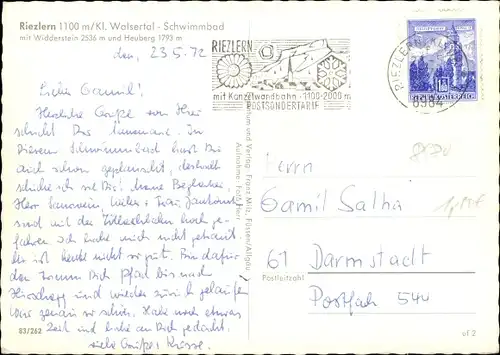 Riezlern 1100 m/Kl. Walsertal - Schwimmbad
mit Widderstein 2536 m und Heuberg 1793 m
den, 23.5.72
RIEZLERN
mit Kanzelwandbahn · 1100-2000 m
POSTSONDERTARIF
RIEZLERN
6984
REPUBLIK ÖSTERREICH
Lieber Gamil!
Herzliche Grüße von Hier
schickt Dir
diesem Schwimmbad hast Du
auch schon geplanscht, deshalb
schicke ich sie Dir! Meine Begleiter
Herr und Frau
sind mit der hoch ge-
fahren. Ich habe mich nicht getraut.
ist heute nicht so gut. Bin dafür
den Pfad bis nach
Hirschegg und wieder zurück gelaufen
war genau so schön. Habe noch etwas
Zeit und habe an Dich gedacht.
viele Grüße + Küsse.
Herrn
Gamil Salha
61 Darmstadt
Postleitzahl
Postfach 544
Aufnahme und Verlag Franz Milz, Füssen/Allgäu
83/262
of 2